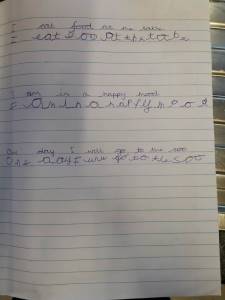 I eat food at the table
I eat food at the table
I am in a happy mood
I am in a happy mood
One day I will go to the zoo
One day I will go to the zoo